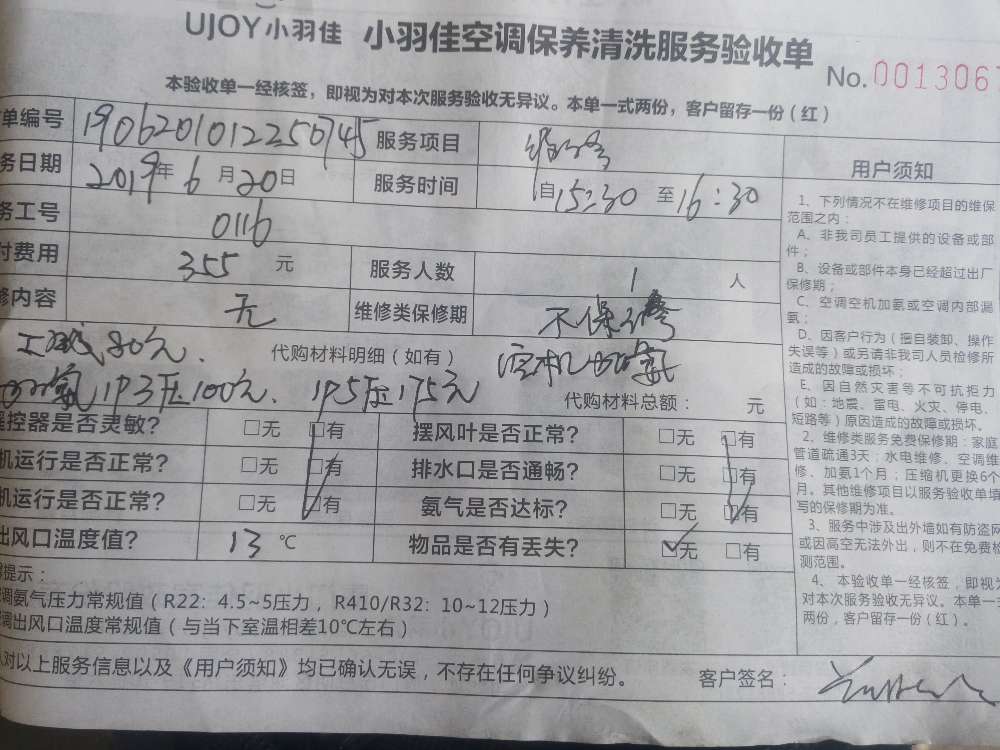 UJOY小羽佳 小羽佳空调保养清洗服务验收单
No.001306
本验收单一经核签，即视为对本次服务验收无异议。本单一式两份，客户留存一份（红）
单编号 1906201012250745 服务项目
务日期 2019年6月20日 服务时间 自15:30 至16:30
务工号 0116
付费用 355 元 服务人数 1 人
修内容 无 维修类保修期 不保修
80元. 代购材料明细（如有） 空机加氨
加氨1P3压100元. 1P5压175元 代购材料总额： 元
控器是否灵敏? □无 □有 摆风叶是否正常? □无 □有
机运行是否正常? □无 □有 排水口是否通畅? □无 □有
机运行是否正常? □无 □有 氨气是否达标? □无 □有
出风口温度值? 13 ℃ 物品是否有丢失? ☑无 □有
提示：
调氨气压力常规值（R22：4.5~5压力，R410/R32：10~12压力）
调出风口温度常规值（与当下室温相差10℃左右）
对以上服务信息以及《用户须知》均已确认无误，不存在任何争议纠纷。 客户签名：
用户须知
1、下列情况不在维修项目的维保
范围之内：
A、非我司员工提供的设备或部
件；
B、设备或部件本身已经超过出厂
保修期；
C、空调空机加氨或空调内部漏
氨；
D、因客户行为（擅自装卸、操作
失误等）或另请非我司人员检修所
造成的故障或损坏；
E、因自然灾害等不可抗拒力
（如：地震、雷电、火灾、停电、
短路等）原因造成的故障或损坏。
2、维修类服务免费保修期：家庭
管道疏通3天；水电维修、空调维
修、加氨1个月；压缩机更换6个
月。其他维修项目以服务验收单填
写的保修期为准。
3、服务中涉及出外墙如有防盗网
或因高空无法外出，则不在免费检
测范围。
4、本验收单一经核签，即视为
对本次服务验收无异议。本单一式
两份，客户留存一份（红）。